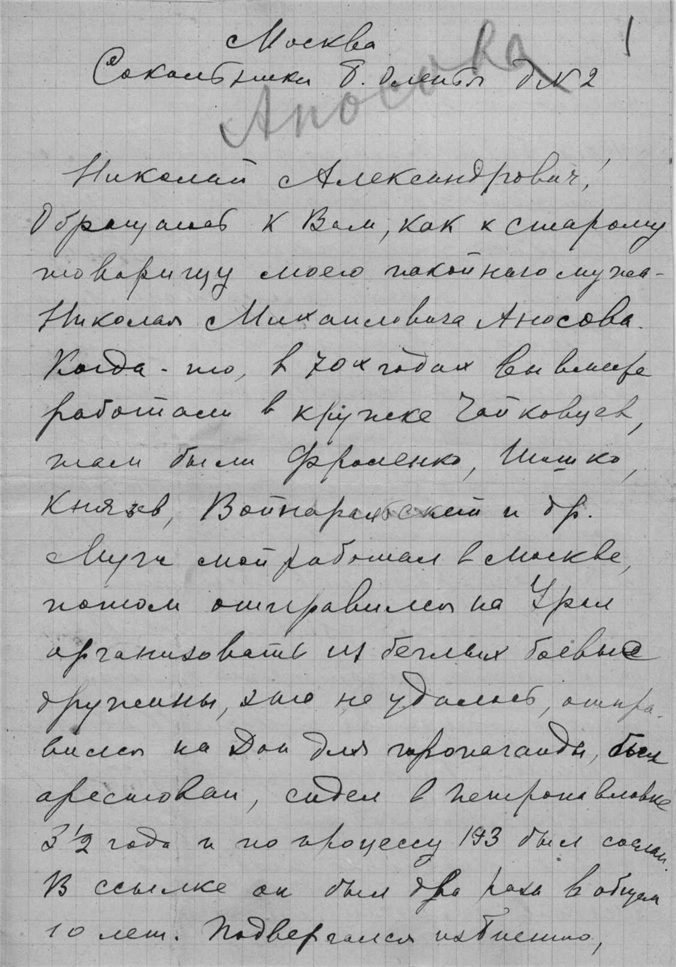 1
Москва
Сокольники Б. Оленья д № 2
Аносова
Николай Александрович!
Обращаюсь к Вам, как к старому
товарищу моего покойного мужа -
Николая Михайловича Аносова.
Когда-то, в 70х годах Вы вместе
работали в кружке Чайковцев,
там были Фроленко, Шишко,
Князев, Войнаральский и др.
Муж мой работал в Москве,
потом отправился на Урал
организовать из беглых боевые
дружины, это не удалось, отпра-
вился на Дон для пропаганды, был
арестован, сидел в Петропавловке
3 1/2 года и по процессу 193 был сослан.
В ссылке он был два раза в общем
10 лет. Подвергался избиению,